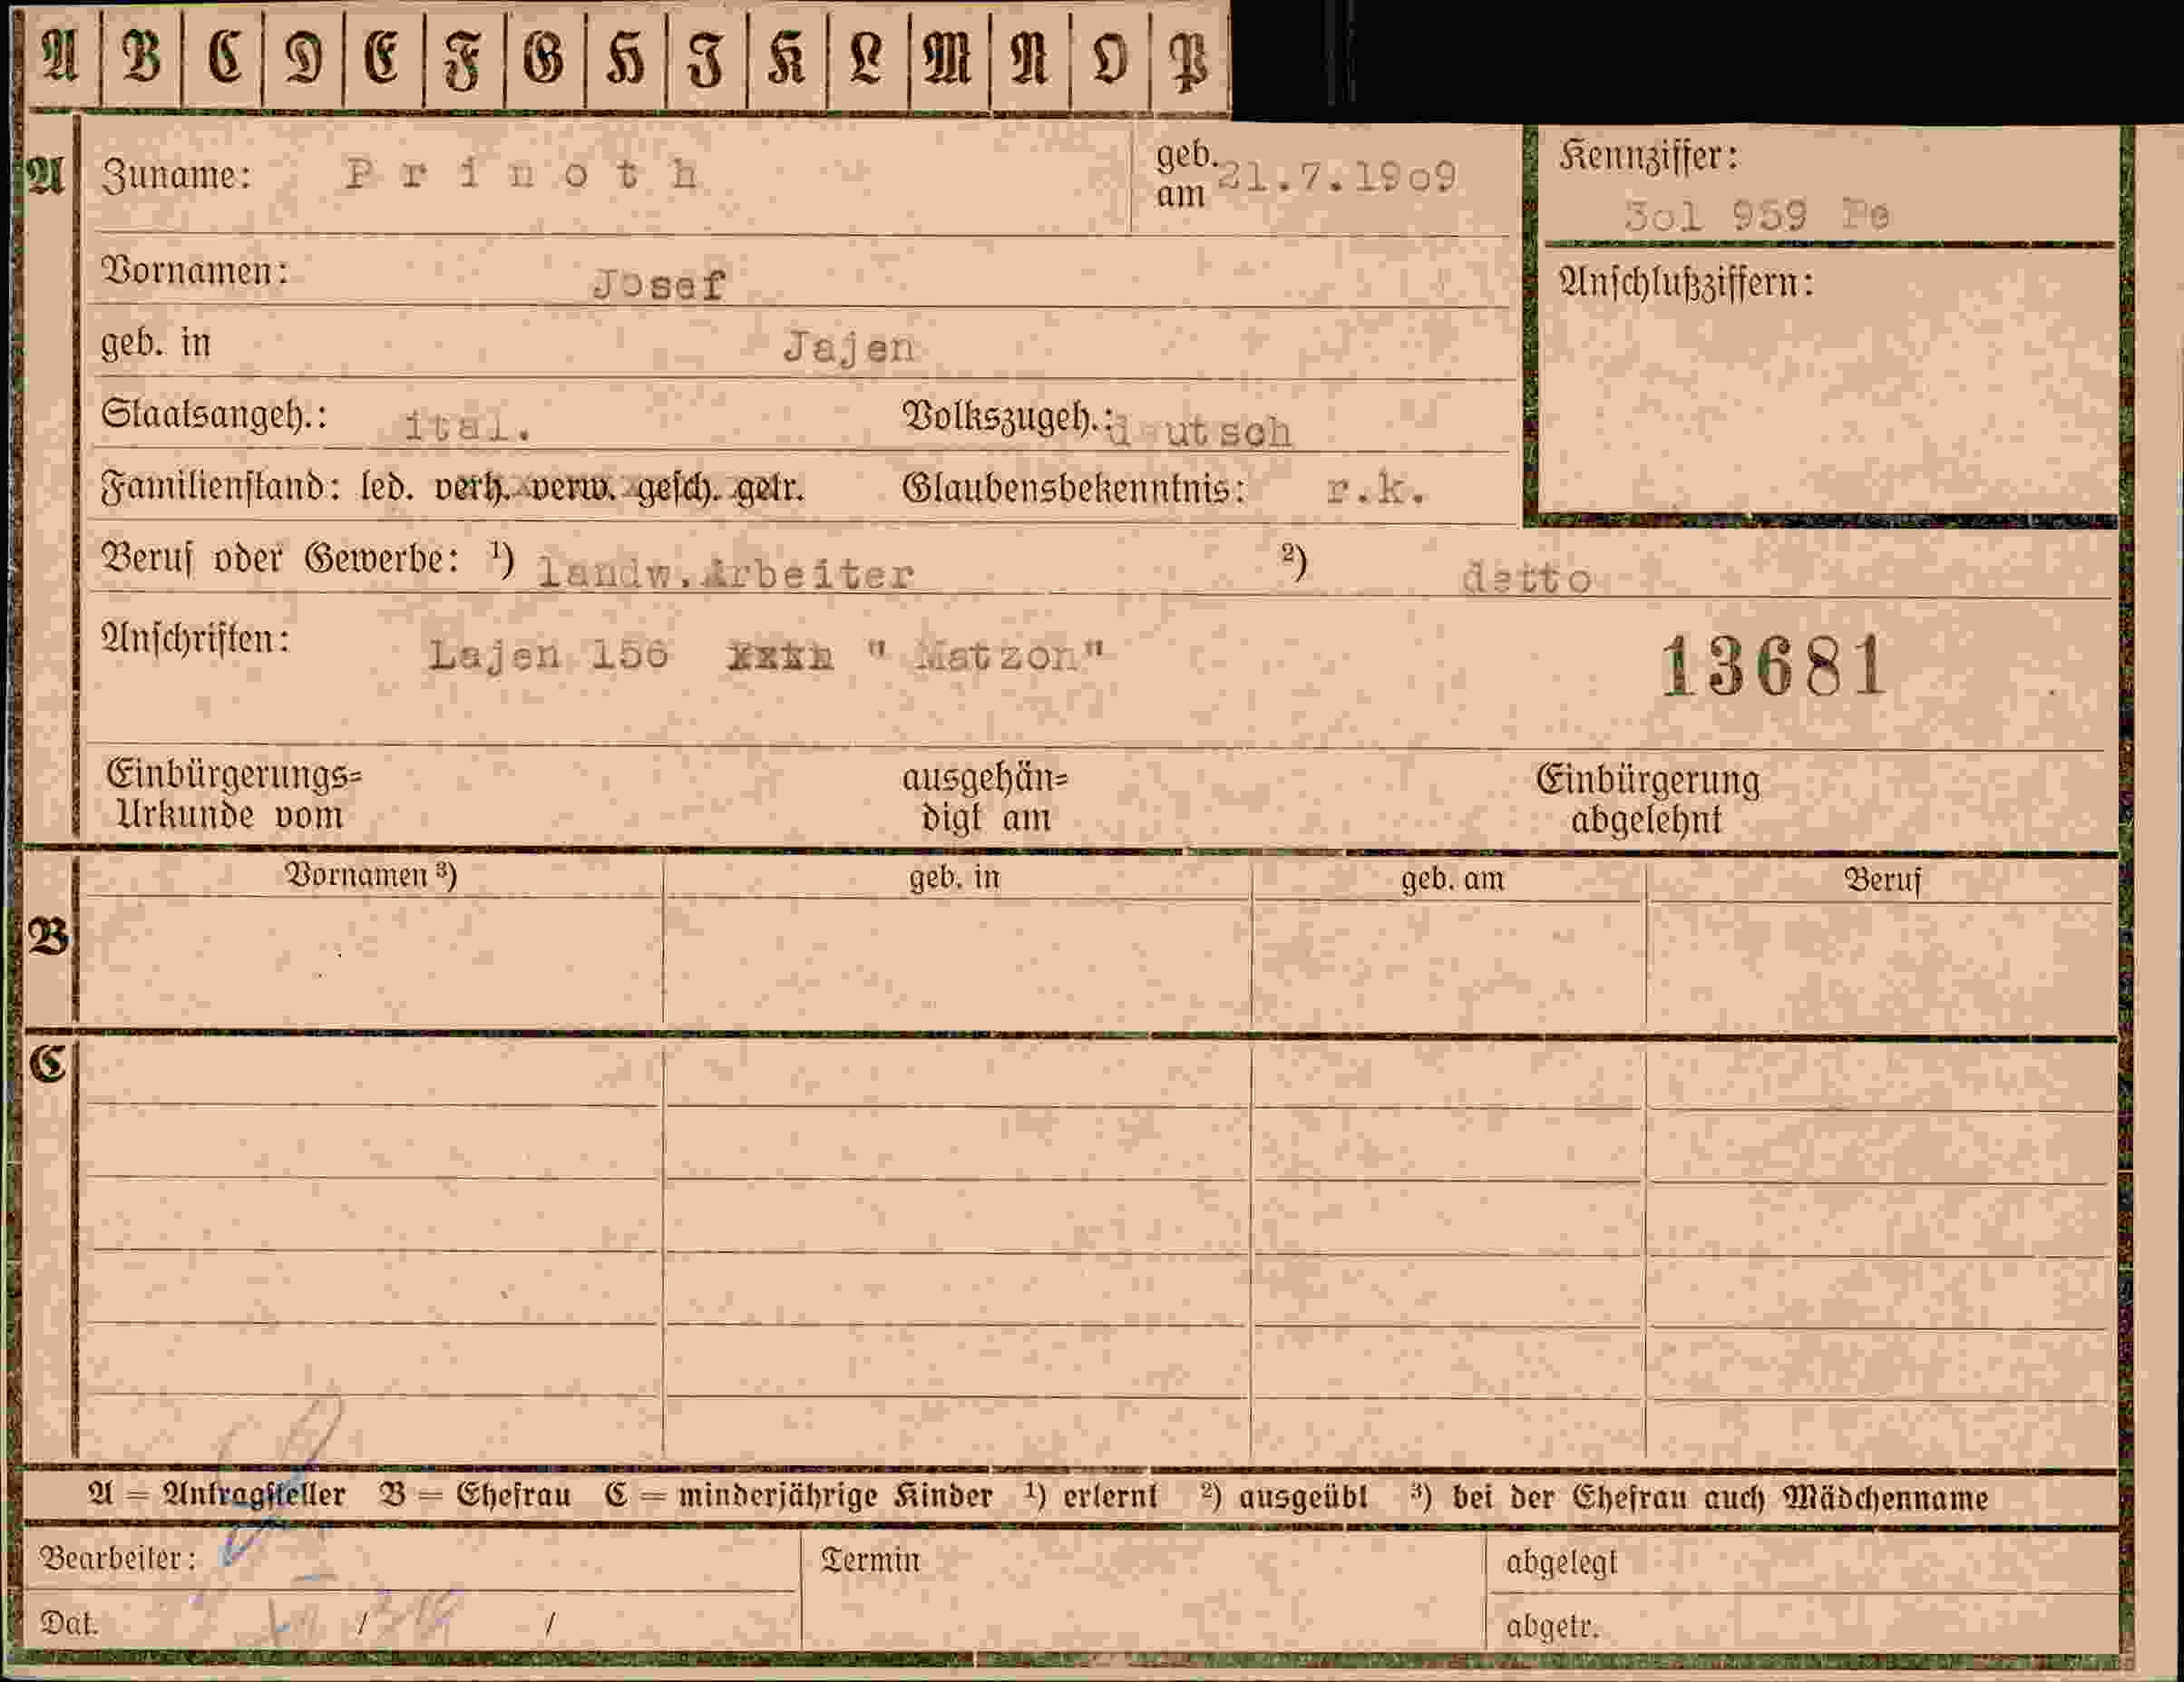 A B C D E F G H I K L M N O P
A Zuname: Prinoth geb. am 21.7.1909
Kennziffer: 301 959 Pe
Vornamen: Josef
Anschlußziffern:
geb. in Jajen
Staatsangeh.: ital. Volkszugeh.: d utsch
Familienstand: led. verh. verw. gesch. getr. Glaubensbekenntnis: r.k.
Beruf oder Gewerbe: ¹) landw.Arbeiter ²) detto
Anschriften: Lajen 156 "Matzon" 13681
Einbürgerungs= ausgehän= Einbürgerung
Urkunde vom digt am abgelehnt
Vornamen ³) geb. in geb. am Beruf
B
C
A = Antragsteller B = Ehefrau C = minderjährige Kinder ¹) erlernt ²) ausgeübt ³) bei der Ehefrau auch Mädchenname
Bearbeiter: Termin abgelegt
Dat. / / abgetr.